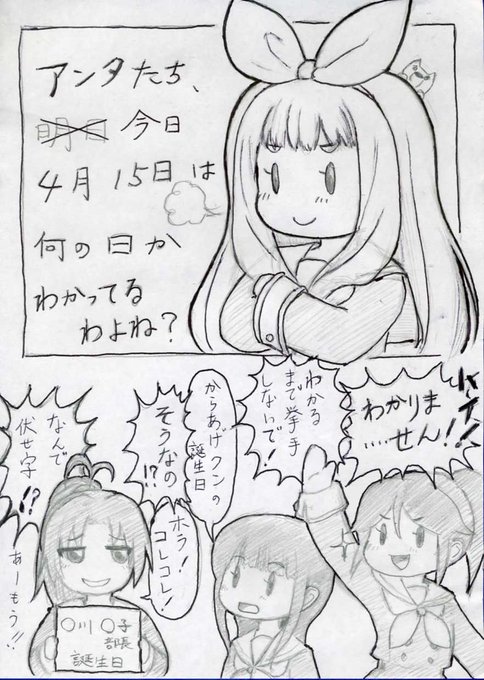 アンタたち、
明日 今日
4月15日は
何の日か
わかってる
わよね?
ハイ!
わかりま
……せん!!
わかる
まで挙手
しないで!
からあげクンの
誕生日
そうなの
!?
ホラ!
コレコレ!
なんで
伏せ字
!?
あーもう!!
〇川〇子
部長
誕生日